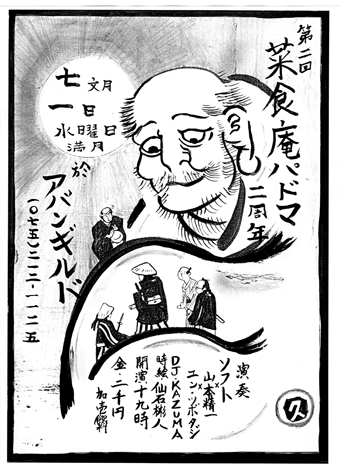 第二回
菜食庵パドマ
二周年
七文月
一日
水曜日
満月
於
アバンギルド
(〇七五)二一二-一一二五
演奏
ソフト
×
山本精一
×
ユン・ツボタジ
DJ・KAZUMA
時絵 仙石彬人
開演十九時
金・二千円
久